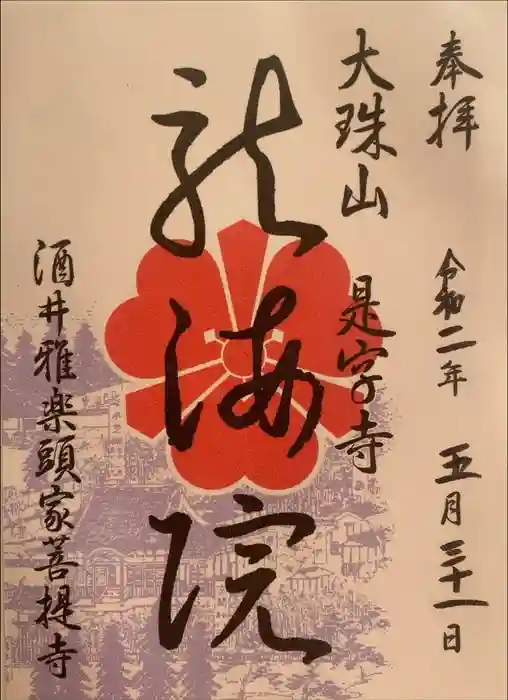 奉拝
令和二年 五月三十一日
大珠山 是字寺
龍海院
酒井雅楽頭家菩提寺